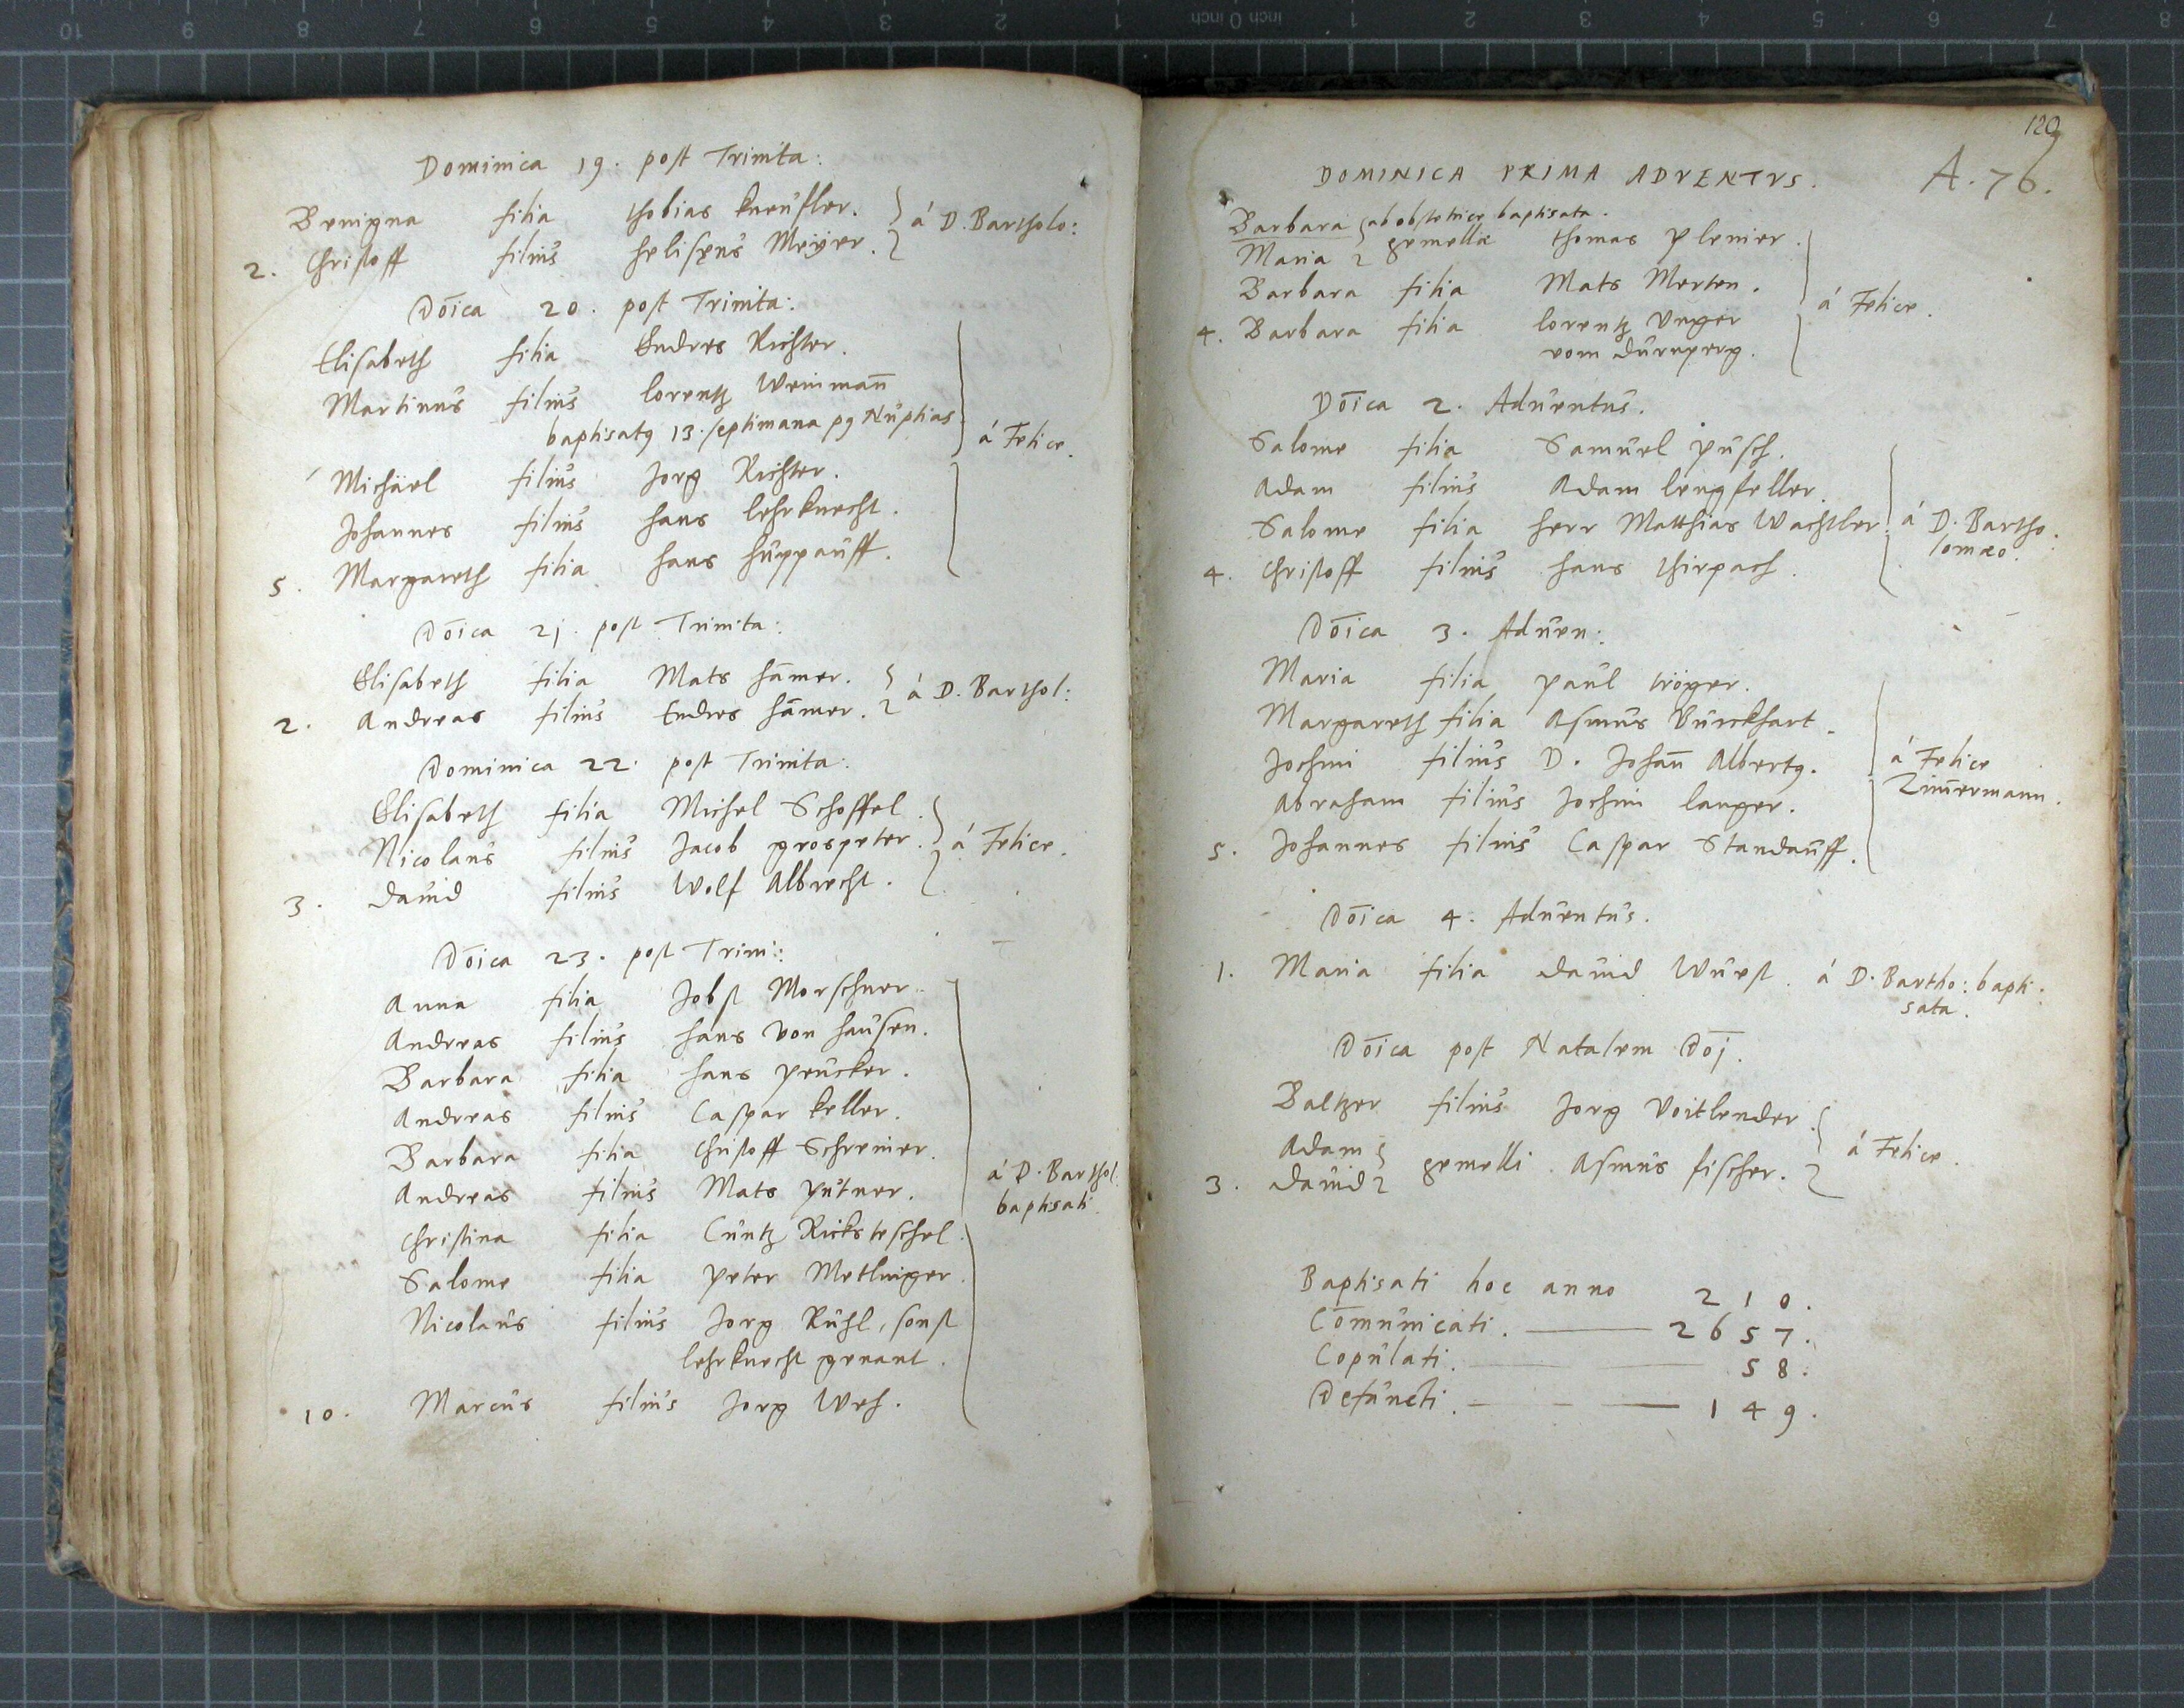 Dominica 19. post Trinita:
Benigna filia thobias kneusler. } á D. Bartholo:
2. Christoff filius helisęus Meÿer.
Dōica 20. post Trinita:
Elisabeth filia Endres Richter.
Martinus filius lorentz Weinman̄
baptisatꝯ 13. septimana pꝯ Nuptias } á Felice.
Michäel filius Jorg Richter.
Johannes filius hans lehrknecht.
5. Margareth filia hans huppauff.
Dōica 21. post Trinita:
Elisabeth filia Mats ham̄er. } á D. Barthol:
2. Andreas filius Endres ham̄er.
Dominica 22. post Trinita:
Elisabeth filia Michel Schoffel.
Nicolaus filius Jacob grospeter. } á Felice.
3. dauid filius Wolf Albrecht.
Dōica 23. post Trini:
Anna filia Jobst Morschner.
Andreas filius hans von hausen.
Barbara filia hans peucker.
Andreas filius Caspar keller.
Barbara filia Christoff Schreiner.
Andreas filius Mats putner. } á D. Barthol.
baptisati.
Christina filia Cuntz Ricksteschel.
Salome filia peter Metlinger.
Nicolaus filius Jorg Ruhl, sonst
lehrknecht genant.
10. Marcus filius Jorg Weh.
120
DOMINICA PRIMA ADVENTVS. A. 76.
Barbara } ab obstetrice baptisata.
Maria gemellæ thomas plenier.
Barbara filia Mats Merten. } á Felice.
4. Barbara filia lorentz Vnger
vom durnperg.
Dōica 2. Aduentus.
Salome filia Samuel pusch.
Adam filius Adam lengfeller.
Salome filia herr Matthias Wachtler } á D. Bartho.
lomæo
4. Christoff filius hans thirpach.
Dōica 3. Aduen:
Maria filia paul tröger.
Margareth filia Asmus Burckhart.
Jochim filius D. Johan̄ Albertꝯ. } á Felice
Zim̄ermann.
Abraham filius Jochim langer.
5. Johannes filius Caspar Standauff.
Dōica 4. Aduentus.
1. Maria filia dauid Wurst. á D. Bartho: bapti:
sata.
Dōica post Natalem Dōj.
Baltzer filius Jorg Voitlender.
Adam } gemelli. Asmus fischer. } á Felice.
3. dauid
Baptisati hoc anno 210.
Com̄unicati. 2657.
Copulati. 58.
Defuncti. 149.